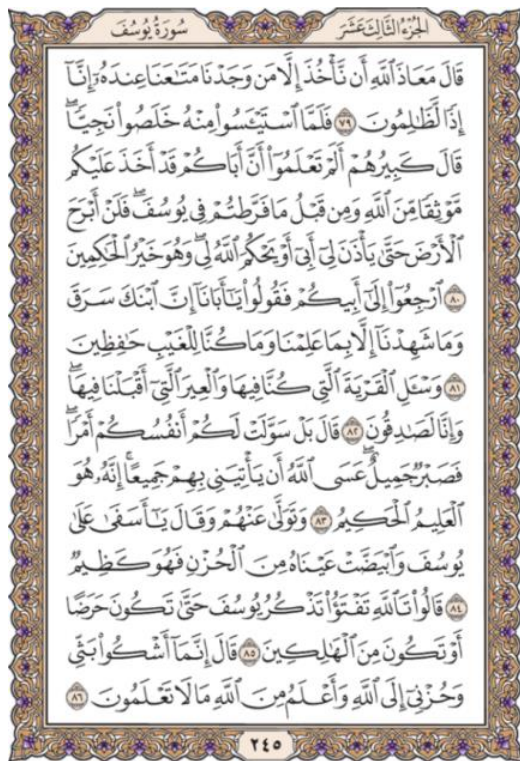 الجزء الثالث عشر
سورة يوسف
قَالَ مَعَاذَ ٱللَّهِ أَن نَّأْخُذَ إِلَّا مَن وَجَدْنَا مَتَٰعَنَا عِندَهُۥٓ إِنَّآ
إِذًا لَّظَٰلِمُونَ ٧٩ فَلَمَّا ٱسْتَيْـَٔسُوا۟ مِنْهُ خَلَصُوا۟ نَجِيًّا ۖ
قَالَ كَبِيرُهُمْ أَلَمْ تَعْلَمُوٓا۟ أَنَّ أَبَاكُمْ قَدْ أَخَذَ عَلَيْكُم
مَّوْثِقًا مِّنَ ٱللَّهِ وَمِن قَبْلُ مَا فَرَّطتُمْ فِى يُوسُفَ ۖ فَلَنْ أَبْرَحَ
ٱلْأَرْضَ حَتَّىٰ يَأْذَنَ لِىٓ أَبِىٓ أَوْ يَحْكُمَ ٱللَّهُ لِى ۖ وَهُوَ خَيْرُ ٱلْحَٰكِمِينَ
٨٠ ٱرْجِعُوٓا۟ إِلَىٰٓ أَبِيكُمْ فَقُولُوا۟ يَٰٓأَبَانَآ إِنَّ ٱبْنَكَ سَرَقَ
وَمَا شَهِدْنَآ إِلَّا بِمَا عَلِمْنَا وَمَا كُنَّا لِلْغَيْبِ حَٰفِظِينَ
٨١ وَسْـَٔلِ ٱلْقَرْيَةَ ٱلَّتِى كُنَّا فِيهَا وَٱلْعِيرَ ٱلَّتِىٓ أَقْبَلْنَا فِيهَا ۖ
وَإِنَّا لَصَٰدِقُونَ ٨٢ قَالَ بَلْ سَوَّلَتْ لَكُمْ أَنفُسُكُمْ أَمْرًا ۖ
فَصَبْرٌ جَمِيلٌ ۖ عَسَى ٱللَّهُ أَن يَأْتِيَنِى بِهِمْ جَمِيعًا ۚ إِنَّهُۥ هُوَ
ٱلْعَلِيمُ ٱلْحَكِيمُ ٨٣ وَتَوَلَّىٰ عَنْهُمْ وَقَالَ يَٰٓأَسَفَىٰ عَلَىٰ
يُوسُفَ وَٱبْيَضَّتْ عَيْنَاهُ مِنَ ٱلْحُزْنِ فَهُوَ كَظِيمٌ
٨٤ قَالُوا۟ تَٱللَّهِ تَفْتَؤُا۟ تَذْكُرُ يُوسُفَ حَتَّىٰ تَكُونَ حَرَضًا
أَوْ تَكُونَ مِنَ ٱلْهَٰلِكِينَ ٨٥ قَالَ إِنَّمَآ أَشْكُوا۟ بَثِّى
وَحُزْنِىٓ إِلَى ٱللَّهِ وَأَعْلَمُ مِنَ ٱللَّهِ مَا لَا تَعْلَمُونَ ٨٦
٢٤٥